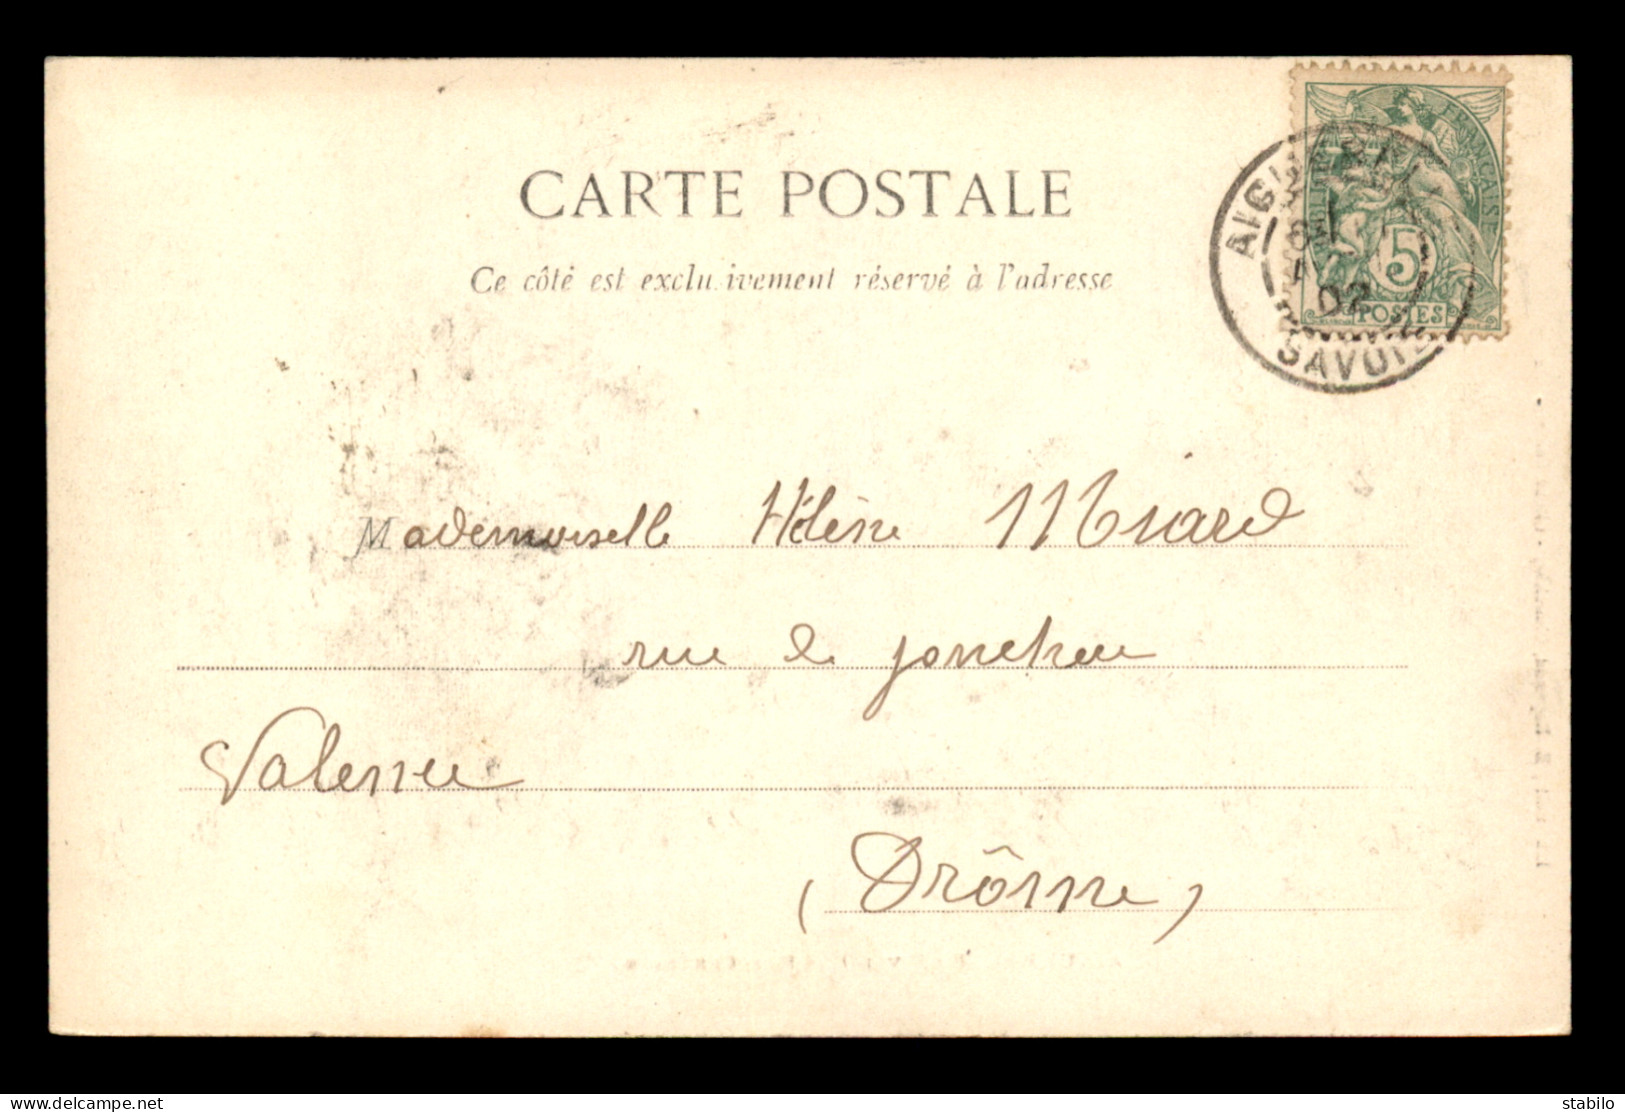 CARTE POSTALE
Ce côté est exclusivement réservé à l'adresse
RÉPUBLIQUE FRANÇAISE
5
POSTES
02
SAVOIE
Mademoiselle Hélène Miard
rue de jonchere
Valence
(Drôme)
delcampe.net
stabilo